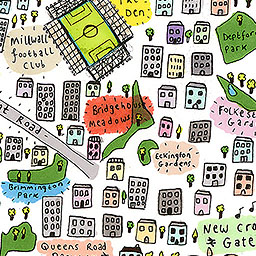 THE
DEN
Millwall
Football
Club
Deptford
Park
Bridgehouse
Meadows
Folkes
Gard
Road
Eckington
Gardens
Brimmington
Park
New Cro
Gate
Queens Road